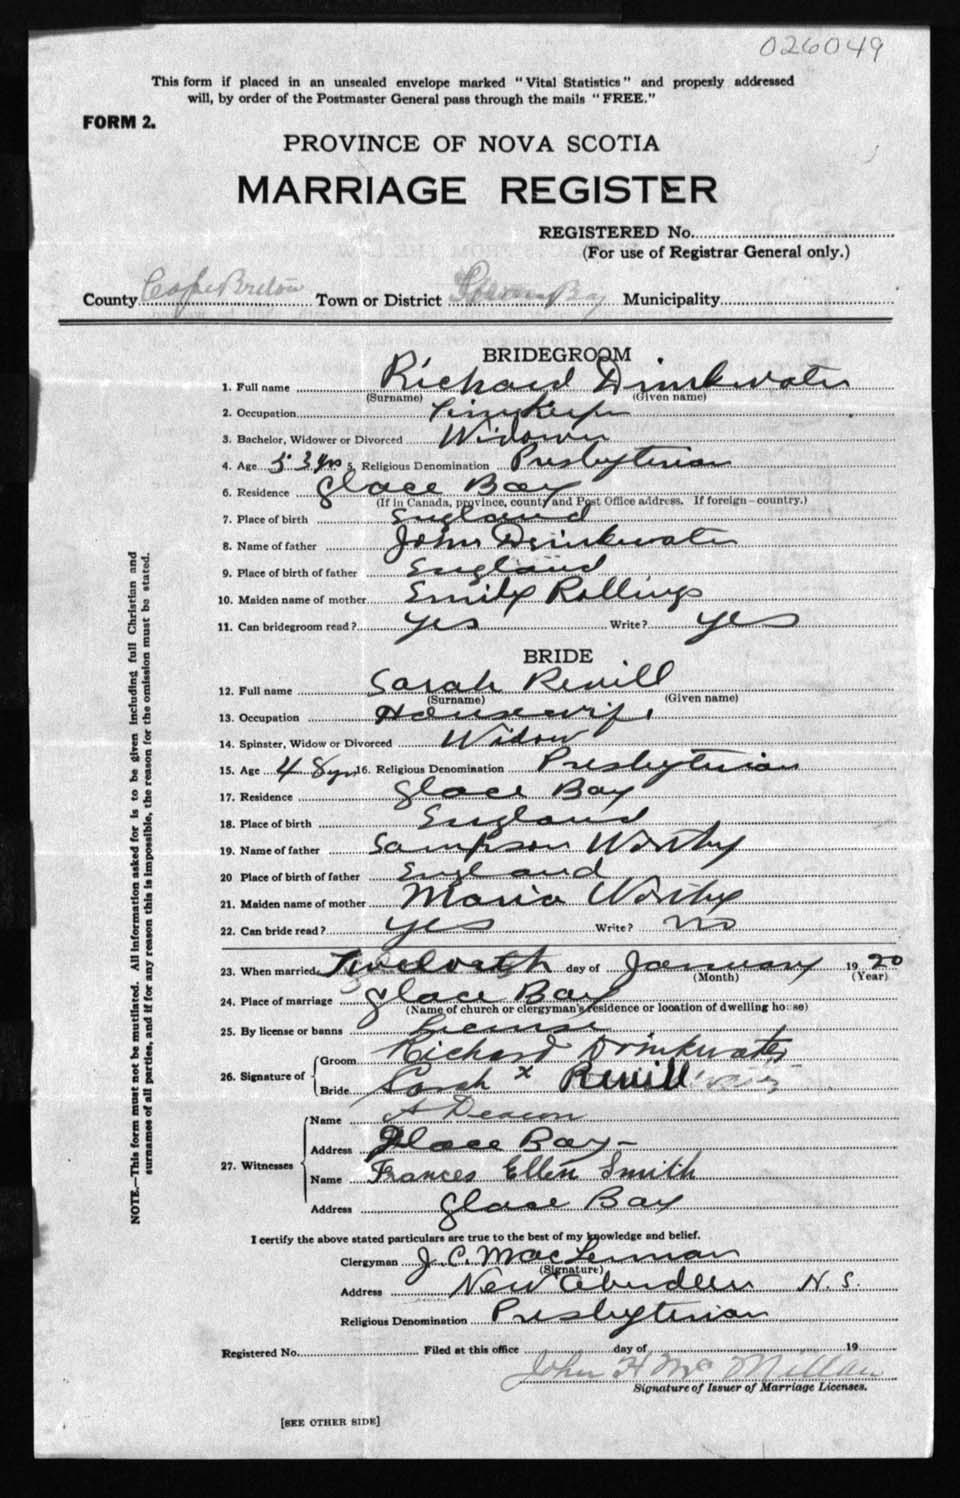 026049
This form if placed in an unsealed envelope marked "Vital Statistics" and properly addressed
will, by order of the Postmaster General pass through the mails "FREE."
FORM 2.
PROVINCE OF NOVA SCOTIA
MARRIAGE REGISTER
REGISTERED No.
(For use of Registrar General only.)
County Cape Breton Town or District Glace Bay Municipality
BRIDEGROOM
1. Full name Richard Drinkwater
(Surname) (Given name)
2. Occupation
3. Bachelor, Widower or Divorced Widower
4. Age 53 yrs 5. Religious Denomination Presbyterian
6. Residence Glace Bay
(If in Canada, province, county and Post Office address. If foreign—country.)
7. Place of birth England
8. Name of father John Drinkwater
9. Place of birth of father England
10. Maiden name of mother Emily Rollings
11. Can bridegroom read? yes Write? yes
BRIDE
12. Full name Sarah Revill
(Surname) (Given name)
13. Occupation Housewife
14. Spinster, Widow or Divorced Widow
15. Age 48 yrs 16. Religious Denomination Presbyterian
17. Residence Glace Bay
18. Place of birth England
19. Name of father Sampson Worthy
20 Place of birth of father England
21. Maiden name of mother Maria Worthy
22. Can bride read? yes Write? no
23. When married Twelveth day of January 1920
(Month) (Year)
24. Place of marriage Glace Bay
(Name of church or clergyman's residence or location of dwelling house)
25. By license or banns License
26. Signature of Groom Richard Drinkwater
Bride Sarah x Revill
27. Witnesses Name A Deacon
Address Glace Bay—
Name Frances Ellen Smith
Address Glace Bay
I certify the above stated particulars are true to the best of my knowledge and belief.
Clergyman J. C. MacLennan
(Signature)
Address New Aberdeen N. S.
Religious Denomination Presbyterian
Registered No. Filed at this office day of 19
John H Mc Millan
Signature of Issuer of Marriage Licenses.
[SEE OTHER SIDE]
NOTE.—This form must not be mutilated. All information asked for is to be given including full Christian and
surnames of all parties, and if for any reason this is impossible, the reason for the omission must be stated.